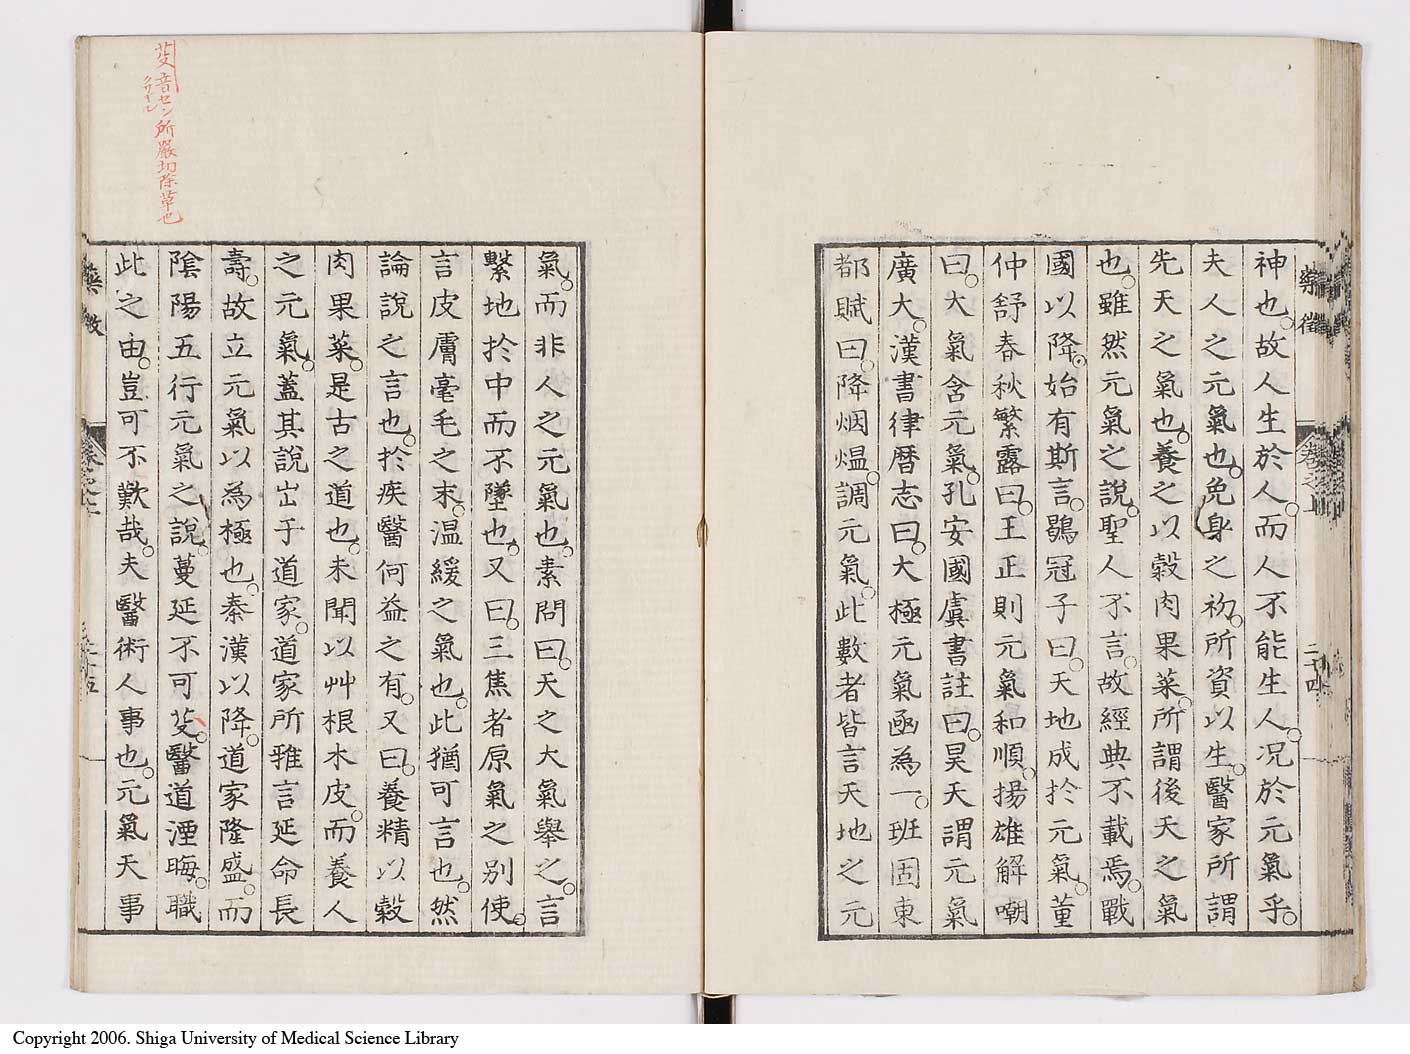 藥徵
卷之上
二十四
神也。故人生於人。而人不能生人。况於元氣乎。
夫人之元氣也。免身之初。所資以生。醫家所謂
先天之氣也。養之以穀肉果菜。所謂後天之氣
也。雖然元氣之說。聖人不言。故經典不載焉。戰
國以降。始有斯言。鶡冠子曰。天地成於元氣。董
仲舒春秋繁露曰。王正則元氣和順。揚雄解嘲
曰。大氣含元氣。孔安國虞書註曰。昊天謂元氣
廣大。漢書律曆志曰。大極元氣函為一。班固東
都賦曰。降烟熅。調元氣。此數者皆言天地之元
氣。而非人之元氣也。素問曰。天之大氣舉之。言
繫地於中而不墜也。又曰。三焦者原氣之別使。
言皮膚毫毛之末。温緩之氣也。此猶可言也。然
論說之言也。於疾醫何益之有。又曰。養精以穀
肉果菜。是古之道也。未聞以艸根木皮。而養人
之元氣。蓋其說出乎道家。道家所雅言延命長
壽。故立元氣以為極也。秦漢以降。道家隆盛。而
陰陽五行元氣之說。蔓延不可芟。醫道湮晦。職
此之由。豈可不歎哉。夫醫術人事也。元氣天事
藥徵
卷之上
二十五
芟 音セン 所嚴切除草也